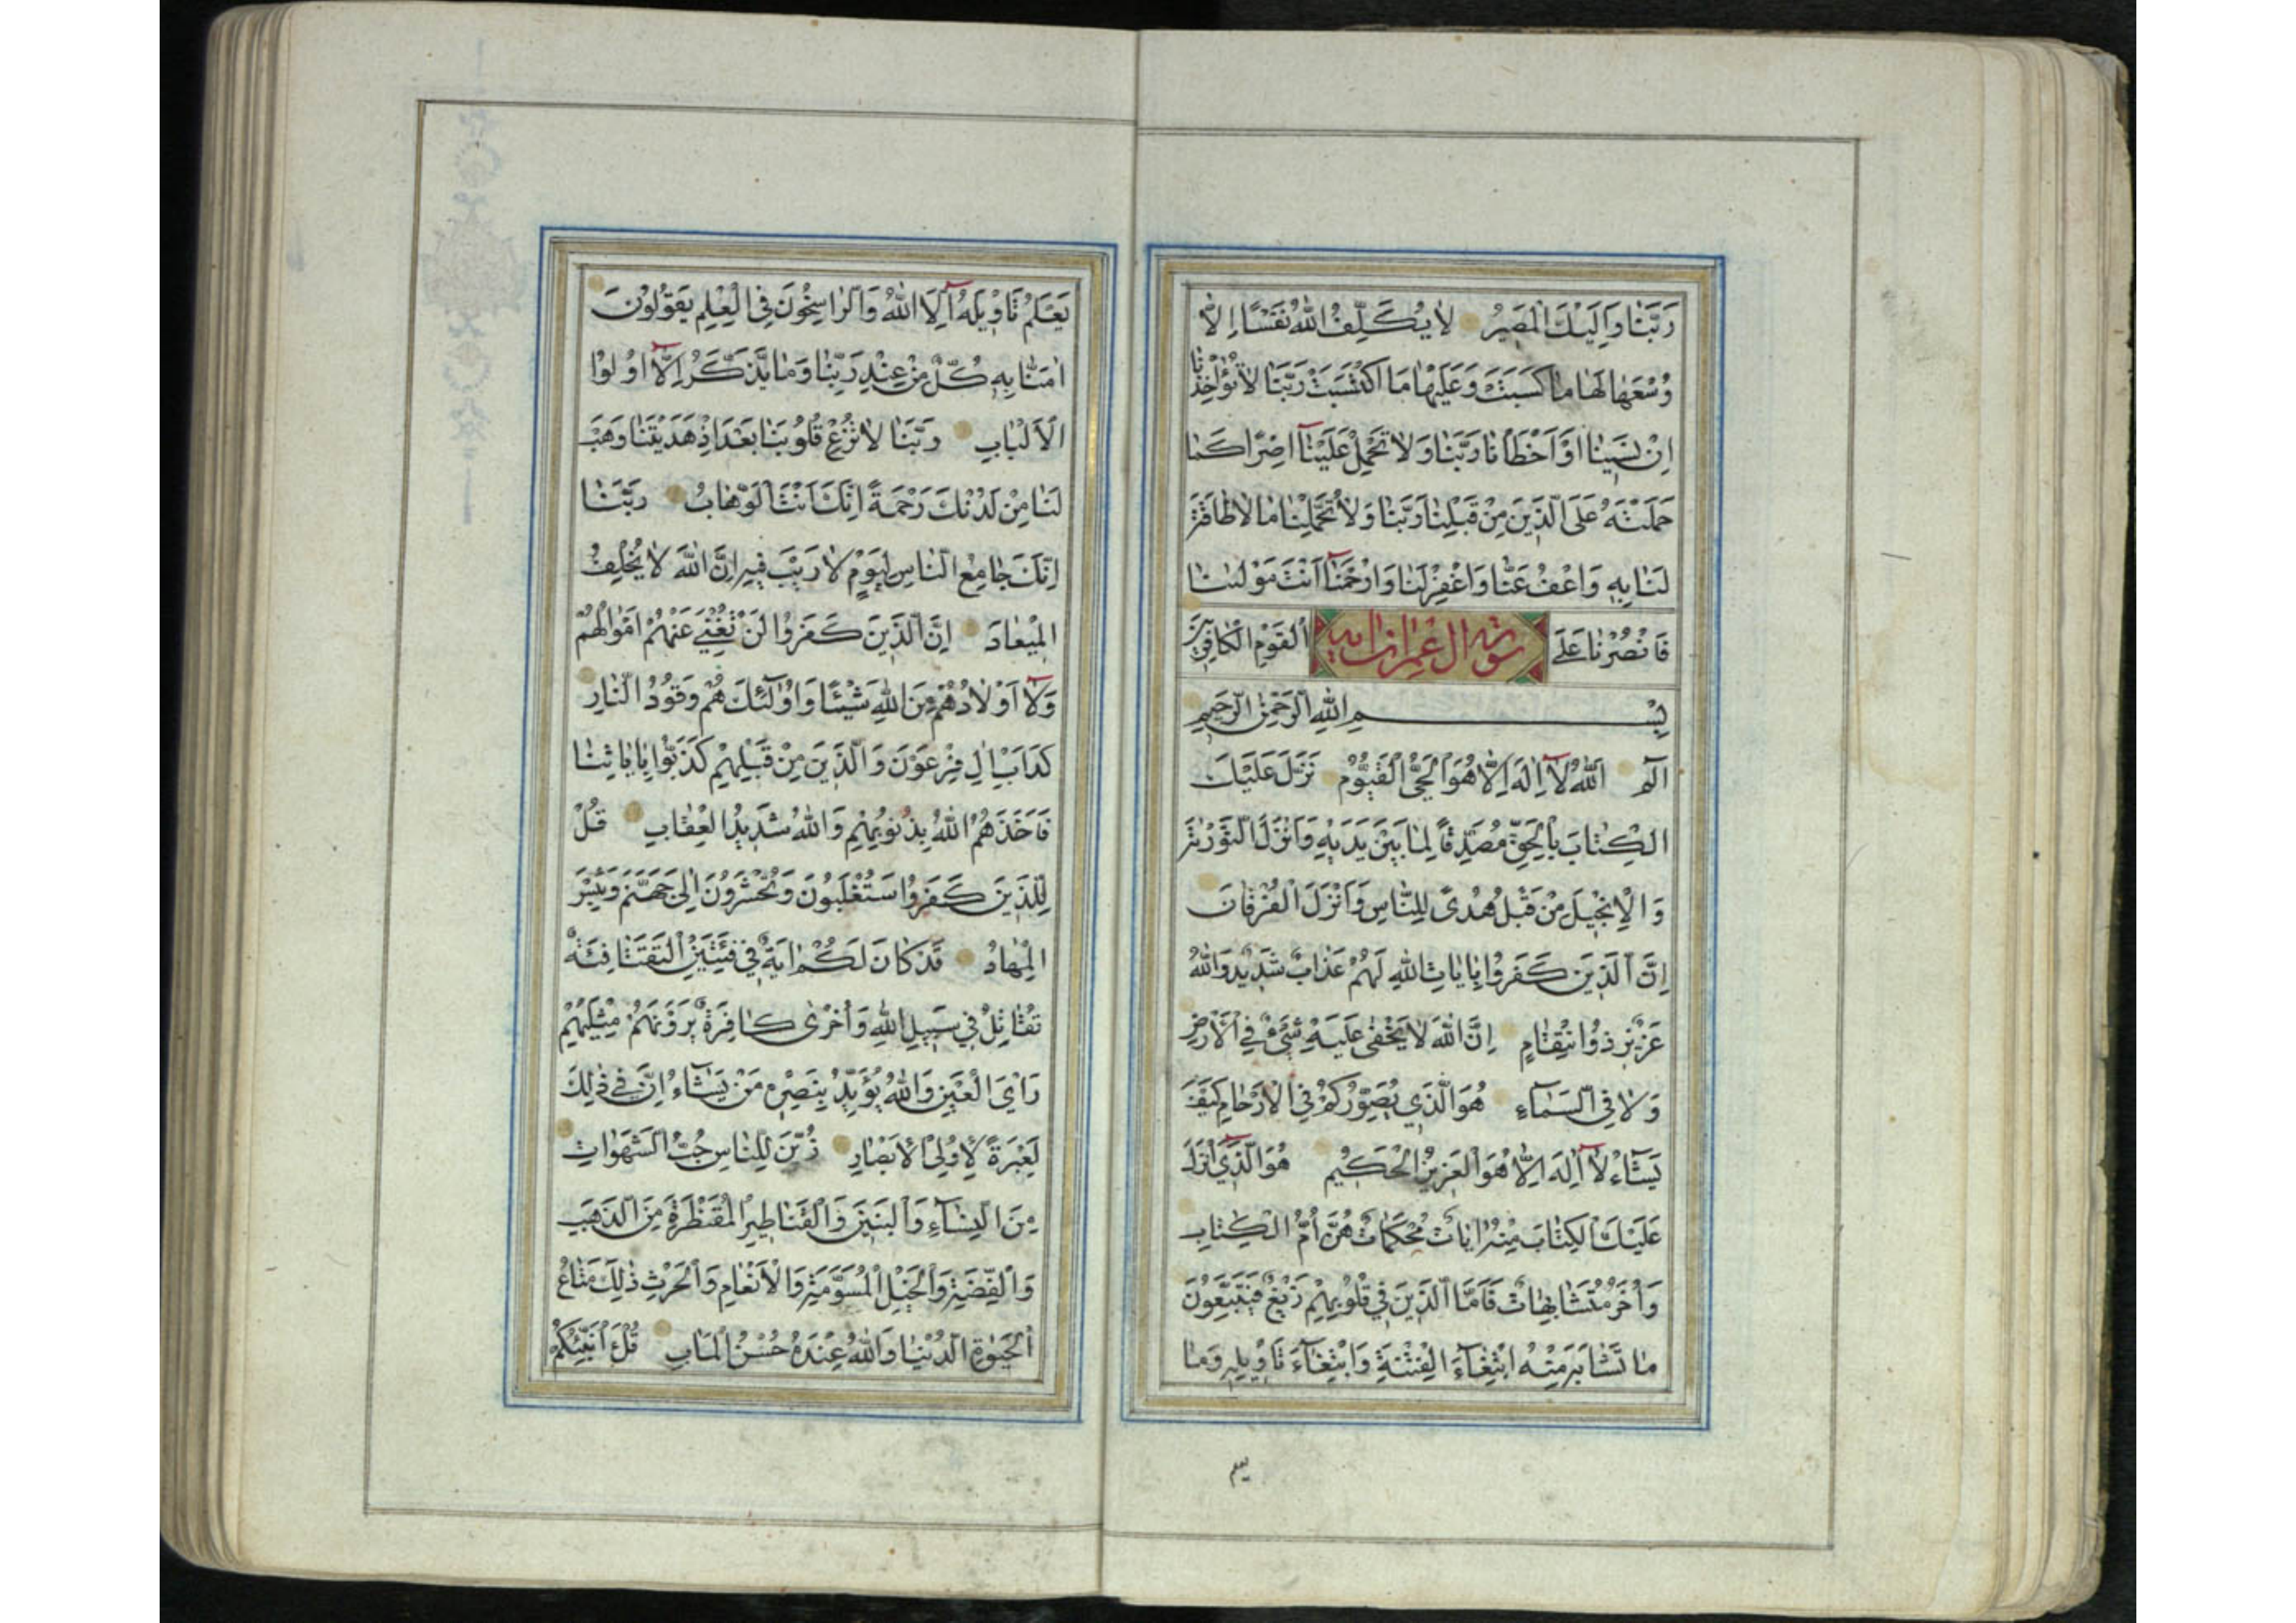 رَبَّنَا وَاِلَيْكَ الْمَصِيرُ لَا يُكَلِّفُ اللّٰهُ نَفْسًا اِلَّا
وُسْعَهَا لَهَا مَا كَسَبَتْ وَعَلَيْهَا مَا اكْتَسَبَتْ رَبَّنَا لَا تُؤَاخِذْنَا
اِنْ نَسِينَا اَوْ اَخْطَاْنَا رَبَّنَا وَلَا تَحْمِلْ عَلَيْنَآ اِصْرًا كَمَا
حَمَلْتَهُ عَلَى الَّذِينَ مِنْ قَبْلِنَا رَبَّنَا وَلَا تُحَمِّلْنَا مَا لَا طَاقَةَ
لَنَا بِهِ وَاعْفُ عَنَّا وَاغْفِرْ لَنَا وَارْحَمْنَآ اَنْتَ مَوْلٰينَا
فَانْصُرْنَا عَلَى الْقَوْمِ الْكَافِرِينَ
سورة ال عمران
بِسْمِ اللّٰهِ الرَّحْمٰنِ الرَّحِيمِ
الٓمٓ اَللّٰهُ لَآ اِلٰهَ اِلَّا هُوَ الْحَيُّ الْقَيُّومُ نَزَّلَ عَلَيْكَ
الْكِتَابَ بِالْحَقِّ مُصَدِّقًا لِمَا بَيْنَ يَدَيْهِ وَاَنْزَلَ التَّوْرٰيةَ
وَالْاِنْجِيلَ مِنْ قَبْلُ هُدًى لِلنَّاسِ وَاَنْزَلَ الْفُرْقَانَ
اِنَّ الَّذِينَ كَفَرُوا بِاٰيَاتِ اللّٰهِ لَهُمْ عَذَابٌ شَدِيدٌ وَاللّٰهُ
عَزِيزٌ ذُو انْتِقَامٍ اِنَّ اللّٰهَ لَا يَخْفٰى عَلَيْهِ شَيْءٌ فِي الْاَرْضِ
وَلَا فِي السَّمَآءِ هُوَ الَّذِي يُصَوِّرُكُمْ فِي الْاَرْحَامِ كَيْفَ
يَشَآءُ لَآ اِلٰهَ اِلَّا هُوَ الْعَزِيزُ الْحَكِيمُ هُوَ الَّذِي اَنْزَلَ
عَلَيْكَ الْكِتَابَ مِنْهُ اٰيَاتٌ مُحْكَمَاتٌ هُنَّ اُمُّ الْكِتَابِ
وَاُخَرُ مُتَشَابِهَاتٌ فَاَمَّا الَّذِينَ فِي قُلُوبِهِمْ زَيْغٌ فَيَتَّبِعُونَ
مَا تَشَابَهَ مِنْهُ ابْتِغَآءَ الْفِتْنَةِ وَابْتِغَآءَ تَاْوِيلِهِ وَمَا
يَعْلَمُ تَاْوِيلَهُ اِلَّا اللّٰهُ وَالرَّاسِخُونَ فِي الْعِلْمِ يَقُولُونَ
اٰمَنَّا بِهِ كُلٌّ مِنْ عِنْدِ رَبِّنَا وَمَا يَذَّكَّرُ اِلَّآ اُولُوا
الْاَلْبَابِ رَبَّنَا لَا تُزِغْ قُلُوبَنَا بَعْدَ اِذْ هَدَيْتَنَا وَهَبْ
لَنَا مِنْ لَدُنْكَ رَحْمَةً اِنَّكَ اَنْتَ الْوَهَّابُ رَبَّنَا
اِنَّكَ جَامِعُ النَّاسِ لِيَوْمٍ لَا رَيْبَ فِيهِ اِنَّ اللّٰهَ لَا يُخْلِفُ
الْمِيعَادَ اِنَّ الَّذِينَ كَفَرُوا لَنْ تُغْنِيَ عَنْهُمْ اَمْوَالُهُمْ
وَلَآ اَوْلَادُهُمْ مِنَ اللّٰهِ شَيْئًا وَاُولٰٓئِكَ هُمْ وَقُودُ النَّارِ
كَدَاْبِ اٰلِ فِرْعَوْنَ وَالَّذِينَ مِنْ قَبْلِهِمْ كَذَّبُوا بِاٰيَاتِنَا
فَاَخَذَهُمُ اللّٰهُ بِذُنُوبِهِمْ وَاللّٰهُ شَدِيدُ الْعِقَابِ قُلْ
لِلَّذِينَ كَفَرُوا سَتُغْلَبُونَ وَتُحْشَرُونَ اِلٰى جَهَنَّمَ وَبِئْسَ
الْمِهَادُ قَدْ كَانَ لَكُمْ اٰيَةٌ فِي فِئَتَيْنِ الْتَقَتَا فِئَةٌ
تُقَاتِلُ فِي سَبِيلِ اللّٰهِ وَاُخْرٰى كَافِرَةٌ يَرَوْنَهُمْ مِثْلَيْهِمْ
رَاْيَ الْعَيْنِ وَاللّٰهُ يُؤَيِّدُ بِنَصْرِهِ مَنْ يَشَآءُ اِنَّ فِي ذٰلِكَ
لَعِبْرَةً لِاُولِي الْاَبْصَارِ زُيِّنَ لِلنَّاسِ حُبُّ الشَّهَوَاتِ
مِنَ النِّسَآءِ وَالْبَنِينَ وَالْقَنَاطِيرِ الْمُقَنْطَرَةِ مِنَ الذَّهَبِ
وَالْفِضَّةِ وَالْخَيْلِ الْمُسَوَّمَةِ وَالْاَنْعَامِ وَالْحَرْثِ ذٰلِكَ مَتَاعُ
الْحَيٰوةِ الدُّنْيَا وَاللّٰهُ عِنْدَهُ حُسْنُ الْمَاٰبِ قُلْ اَؤُنَبِّئُكُمْ